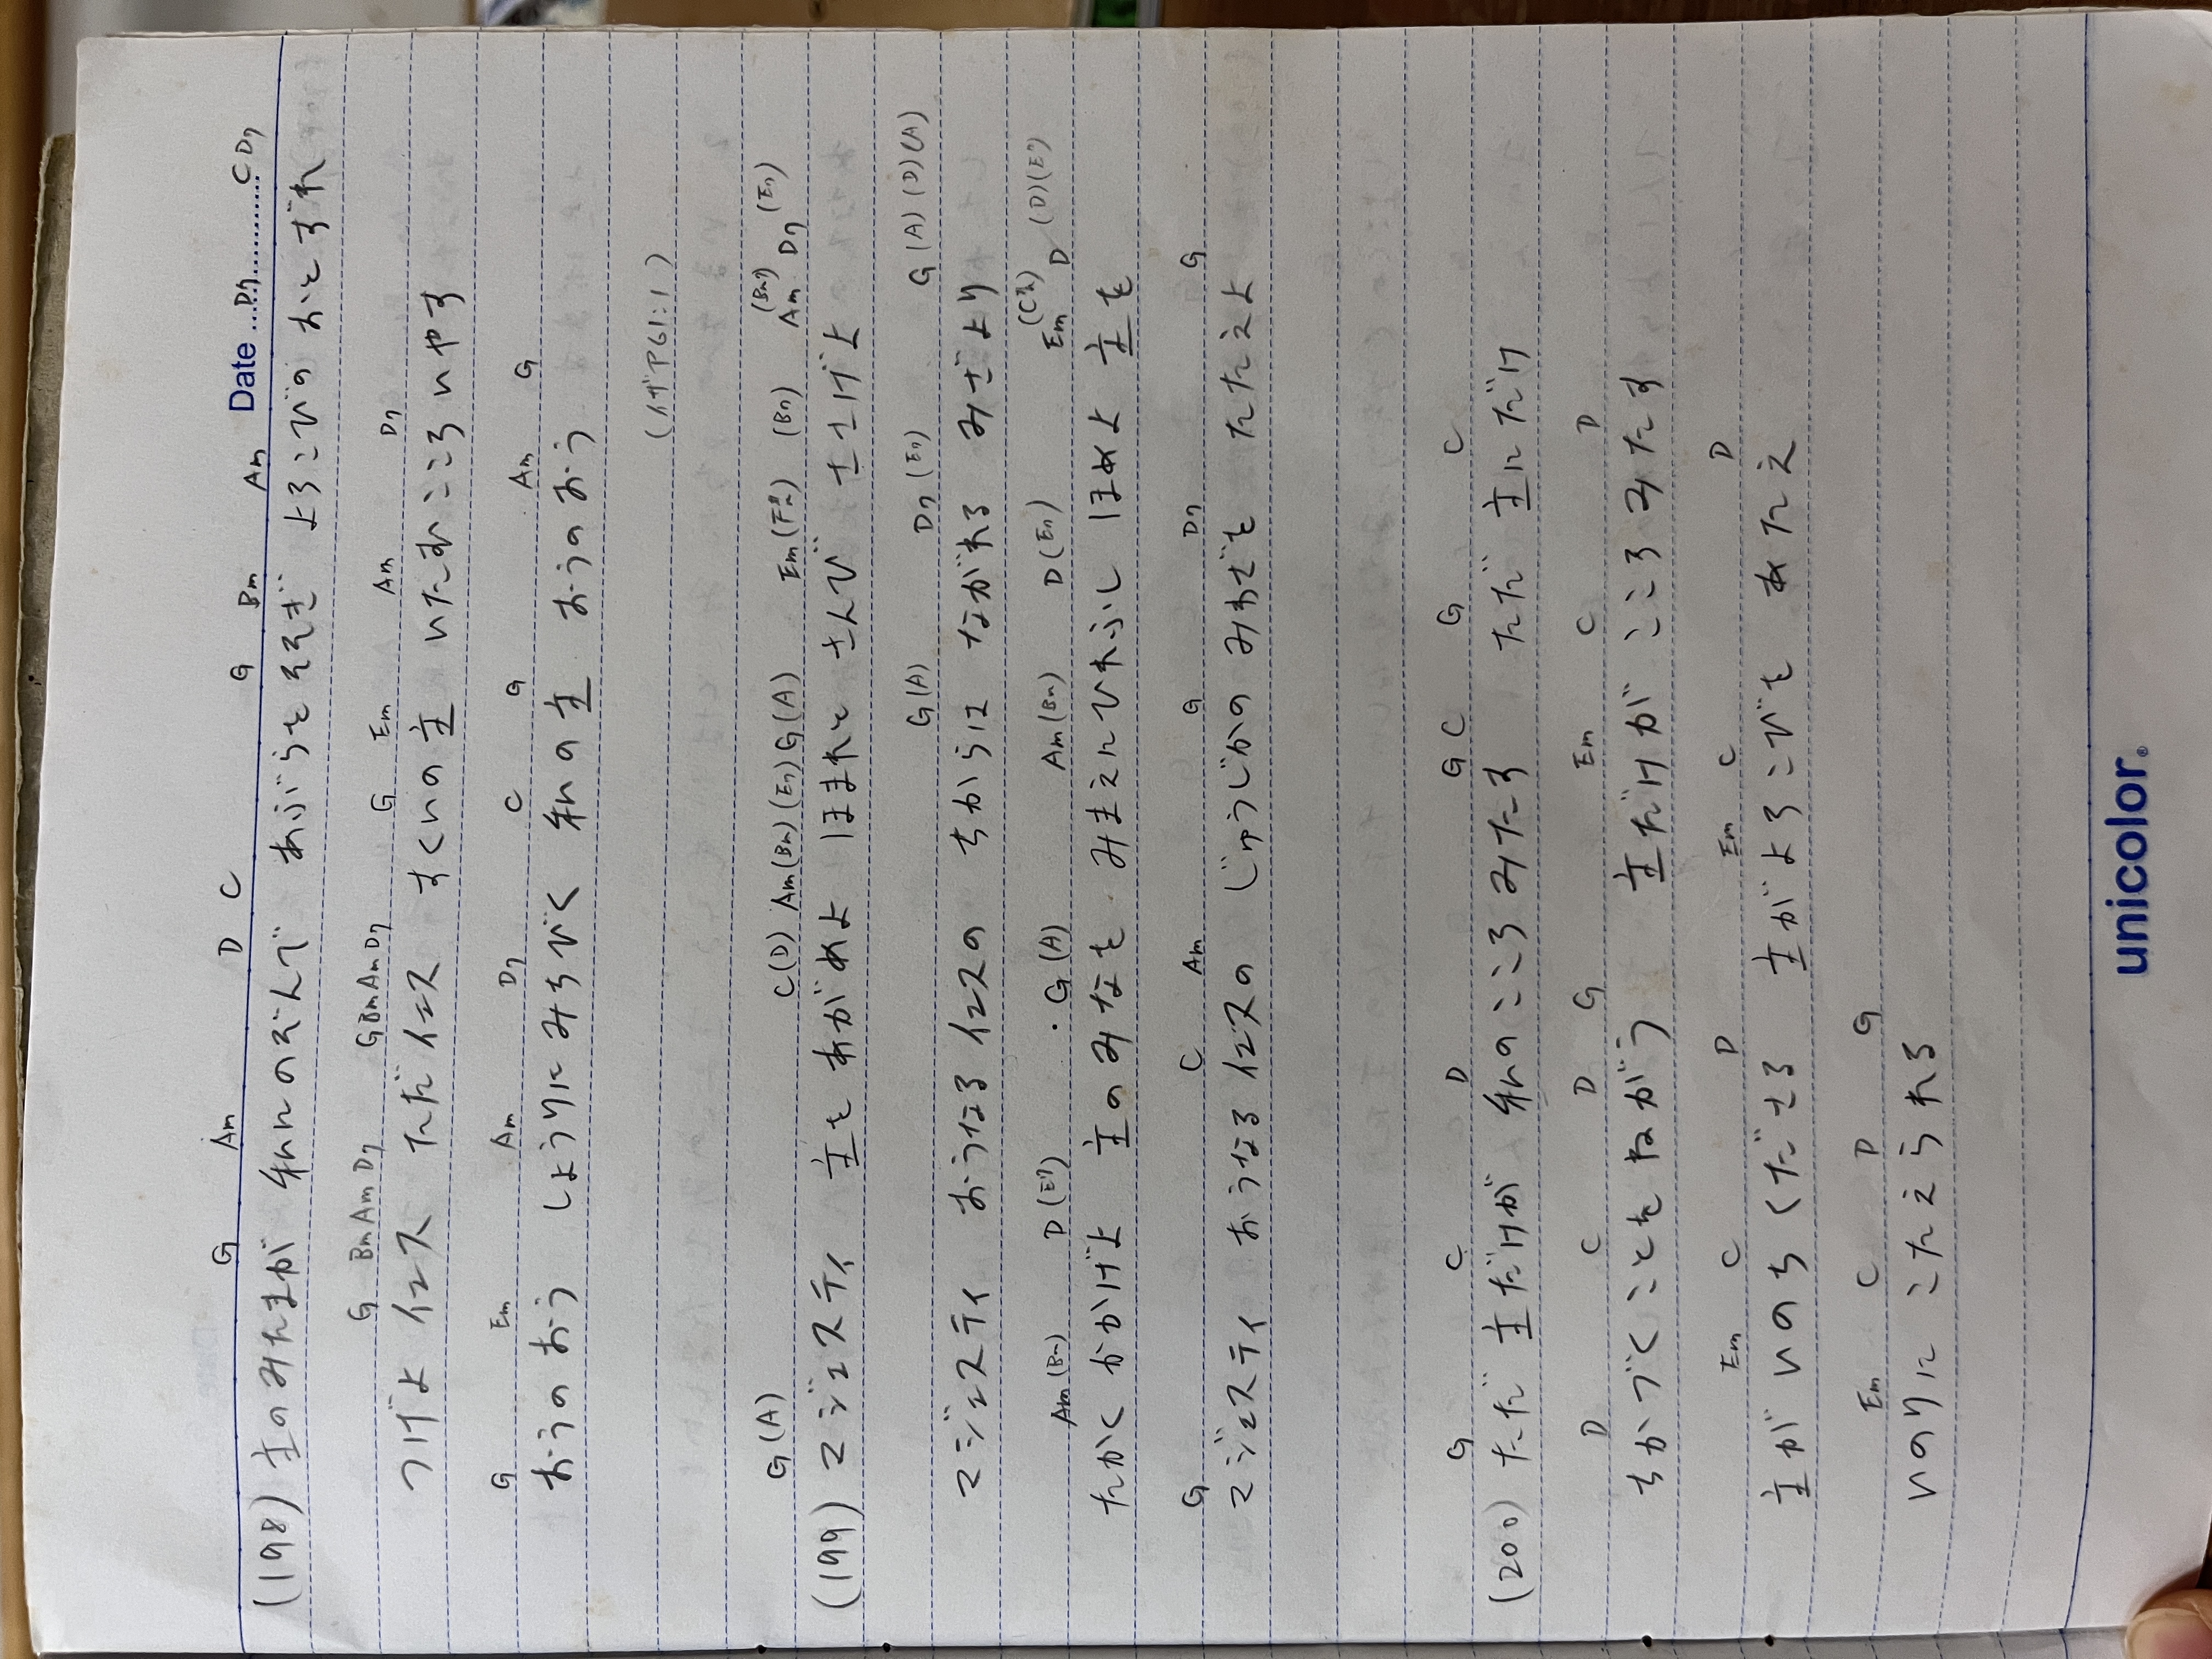 Date
G Am D C G Bm Am D7 C D7
(198) 主のみたまが 私にのぞんで あぶらをそそぎ よろこびの おとずれ
G Bm Am D7 G Bm Am D7 G Em Am D7
つげよ イエス ただイエス すくいの主 いたむこころ いやす
G Em Am D7 C G Am G
おうのおう しょうりにみちびく 私の主 おうのおう
(イザヤ61:1)
G(A) C(D) Am(Bm)(E7) G(A) Em(F#m) (B7) (Bm) Am D7 (E7)
(199) マジェスティ 主をあがめよ ほまれと さんび ささげよ
G(A) D7(E7) G(A)(D)(A)
マジェスティ おうなる イエスの ちからは ながれる みざより
Am(Bm) D(E7) G(A) Am(Bm) D(E7) Em(C#m) D(D)(E7)
たかく かかげよ 主のみなを みまえにひれふし ほめよ 主を
G C Am G D7 G
マジェスティ おうなる イエスの じゅうじかの みわざを たたえよ
G C D G C G C
(200) ただ 主だけが 私のこころみたす ただ 主にだけ
D C D G Em C D
ちかづくことをねがう 主だけが こころみたす
Em C D Em C D
主が いのちくださる 主がよろこびを あたえ
Em C D G
いのりに こたえられる
unicolor.